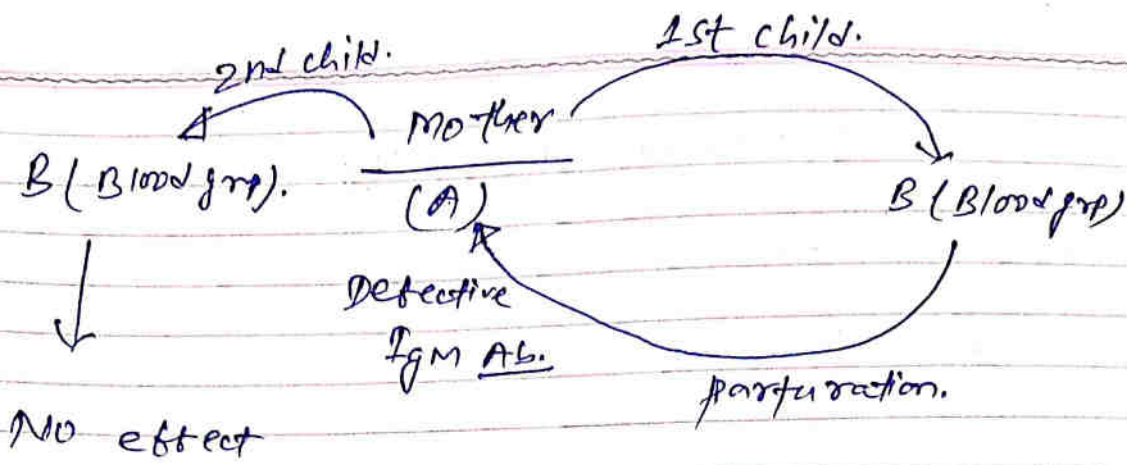 2nd child.
1st child.
Mother
B (Blood grp).
(A)
B (Blood grp)
Defective
IgM Ab.
parturation.
No effect